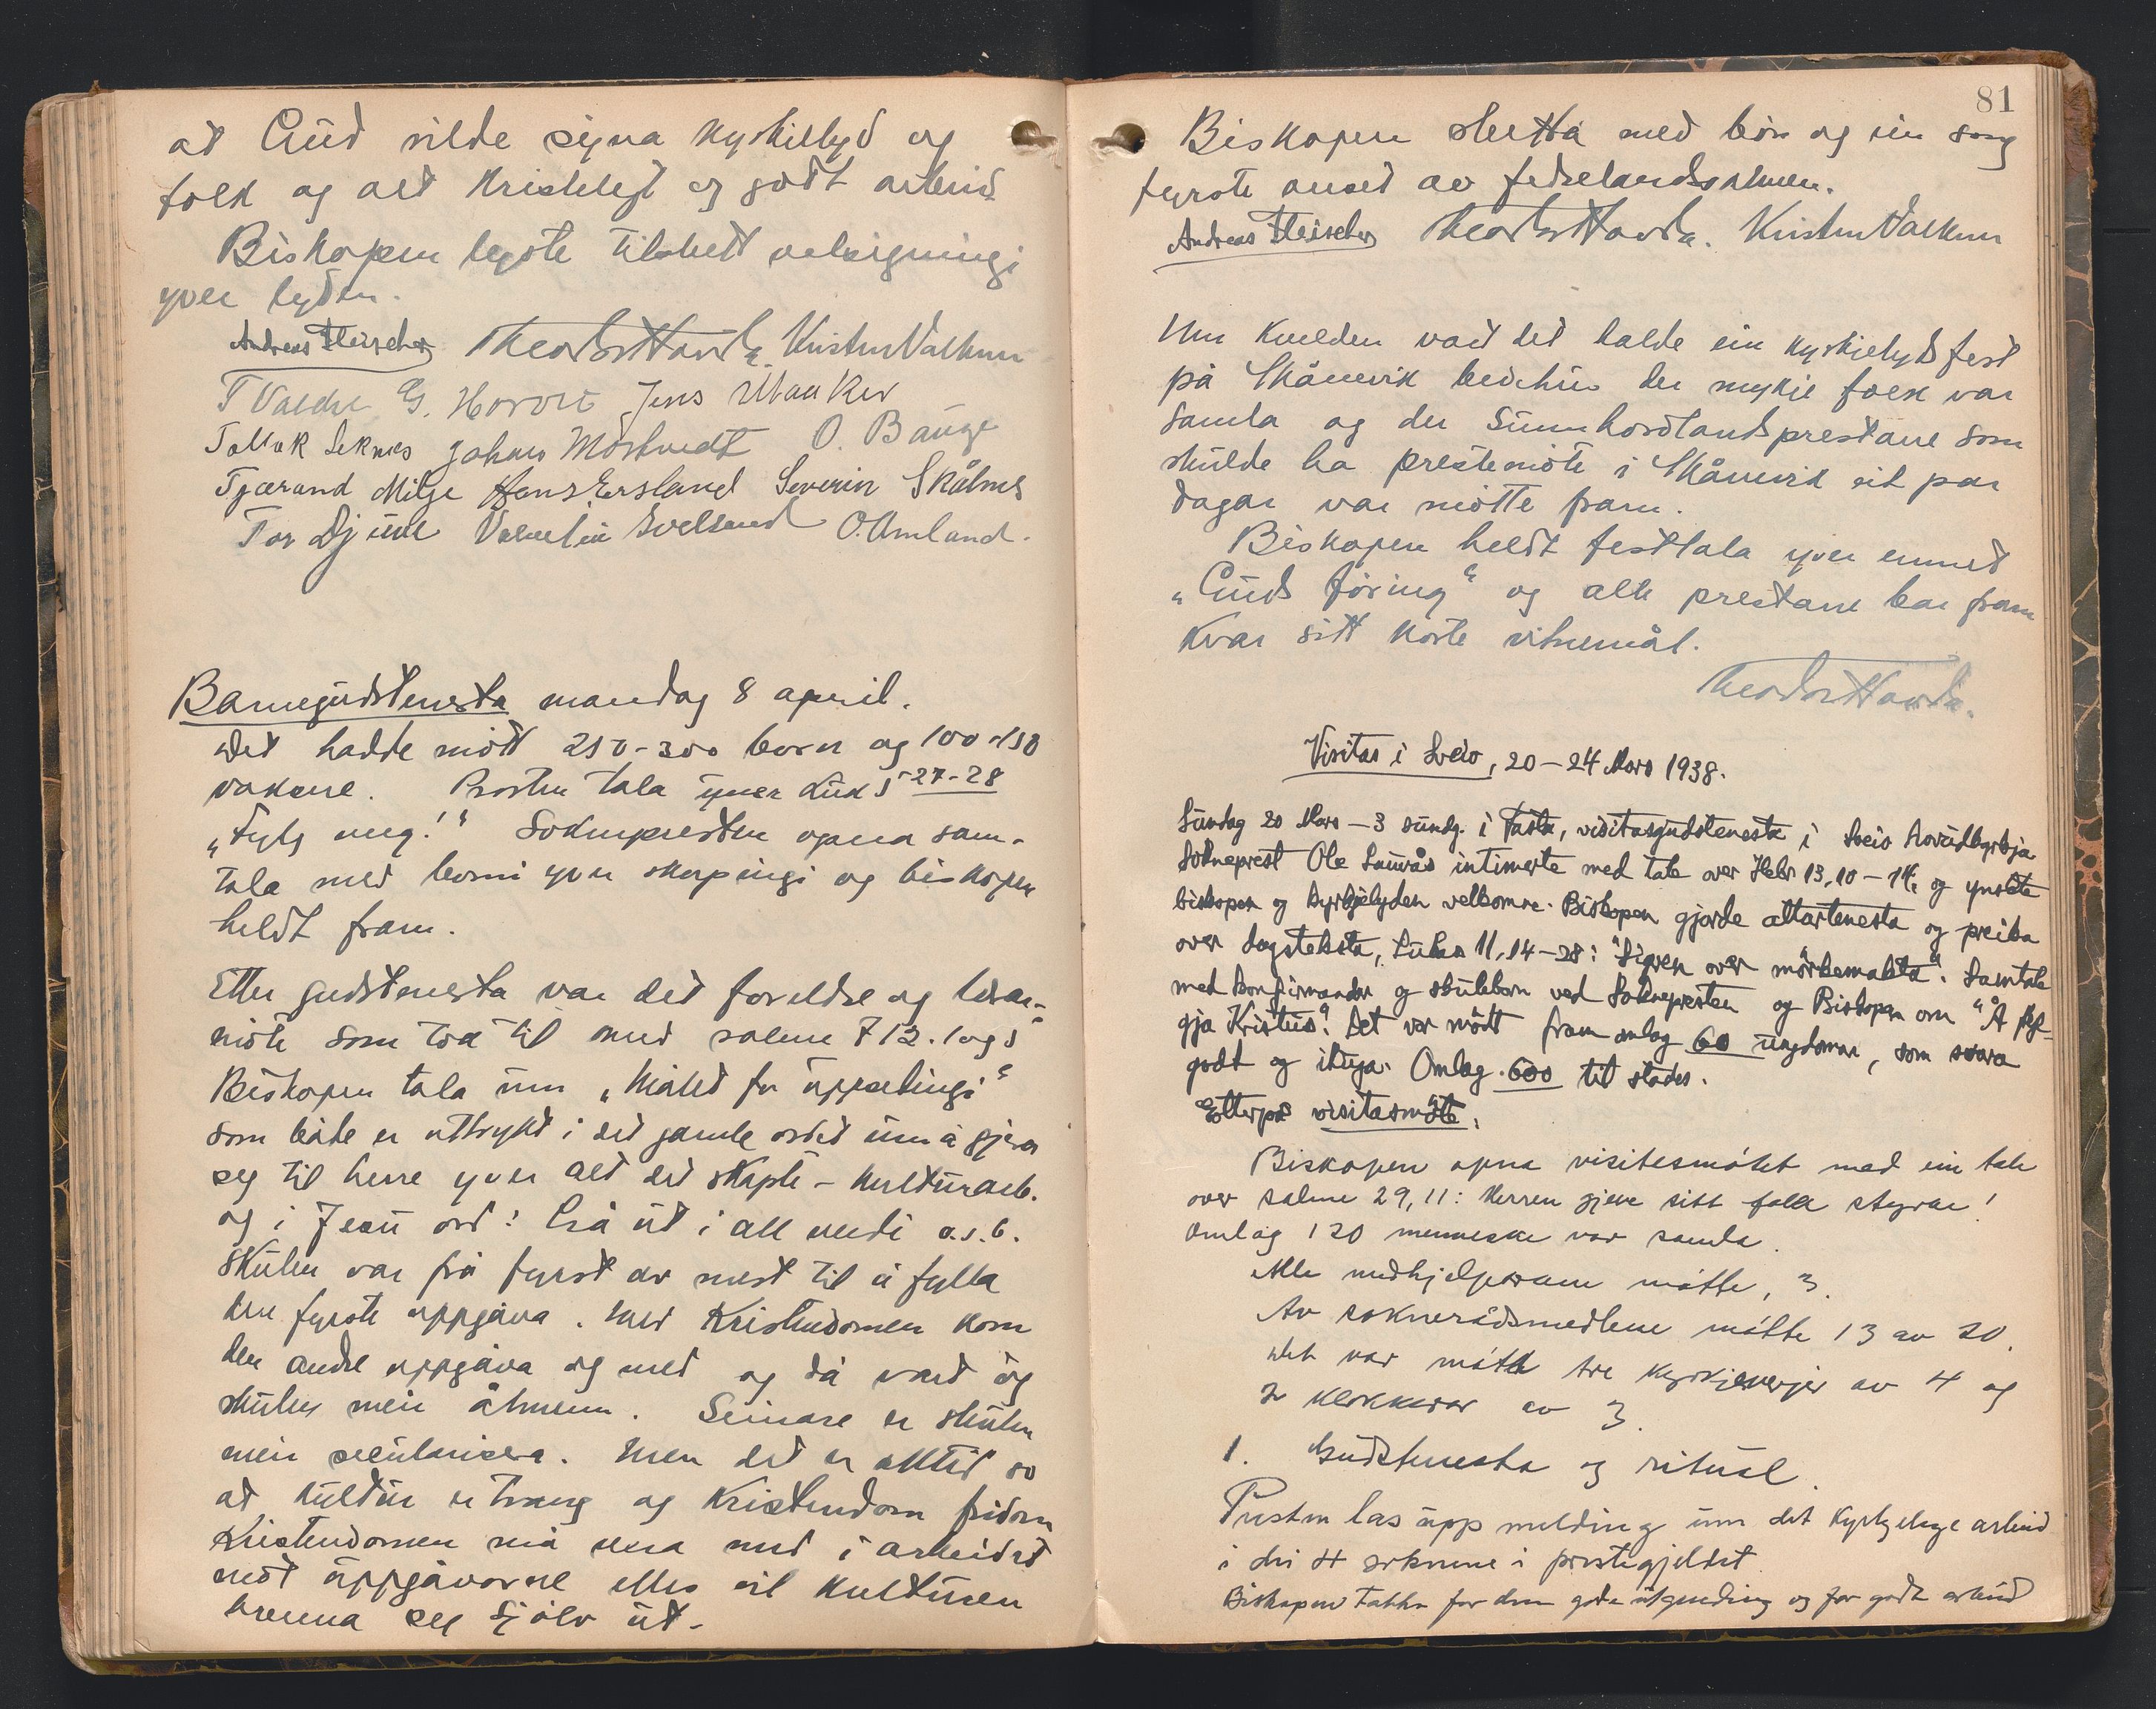 at Gud vilde signa kyrkjelyd og
folk og alt kristelegt og godt arbeid
Biskopen lyste tilslutt velsigningi
yver lyden.
Andreas Fleischer Theodor Havda. Kristen Valkner
T Valdre G. Hovde Jens Maaker
Tollak Seknes Johan Mostvedt O. Bauge
Tjærand Milje Hans Ersland Severin Skålnes
Tor Djuve Valentin O. Amland.
Barnegudstenesta mandag 8 april.
Det hadde mött 250-300 born og 100-150
vaksne. Prosten tala yver Luk 5 27-28
„Fylg meg!" Soknepresten opna sam-
tala med borni yver skapingi og biskopen
heldt fram.
Etter gudstenesta var det foreldre og lærar-
möte som tok til med salme 712. 1 og 5
Biskopen tala um „Målet for uppsedingi"
som både er uttrykt i det gamle ordet um å gjera
seg til herre yver alt det skapte – kulturarb.
og i Jesu ord: Gå ut i all verdi o.s.b.
Skulen var frå fyrst av mest til å fylla
den fyrste uppgåva. Med Kristendomen kom
den andre uppgåva og med og då vart og
skulen meir ålmenn. Seinare er skulen
meir sekularisera. Men det er alltid so
at kultur er trong og Kristendom fridom
Kristendomen må vera med i arbeidet
med uppgåvorne elles vil kulturen
brenna seg sjölv ut.
81
Biskopen slutta med bön og ein song
fyrste verset av fedrelandssalmen.
Andreas Fleischer Theodor Havda. Kristen Valkner
Um kvelden vart det halde ein kyrkjelydsfest
på Skånevik bedehus der mykje folk var
samla og der Sunnhordlandsprestane som
skulde ha prestemöte i Skånevik eit par
dagar var mötte fram.
Biskopen heldt festtala yver emnet
„Guds föring" og alle prestane bar fram
kvar sitt korte vitnemål.
Theodor Havda.
Visitas i Sveio, 20–24 Mars 1938.
Sundag 20 Mars – 3 sundg. i Fasta, visitasgudstenesta i Sveio hovudkyrkja
Sokneprest Ole Saurås intimerte med tale over Hebr 13, 10–14, og ynskte
biskopen og kyrkjelyden velkomne. Biskopen gjorde altartenesta og preika
over dagsteksta, Lukas 11, 14–28: "Sigren over mörkemakta". Samtale
med konfirmandar og skuleborn ved Soknepresten og Biskopen om "Å fyl-
gja Kristus". Det var mött fram omlag 60 ungdomar, som svara
godt og ihuga. Omlag 600 til stades.
Etterpå visitasmöte.
Biskopen opna visitasmötet med ein tale
over salme 29, 11: Herren gjeve sitt folk styrke!
Omlag 120 menneske var samla.
Alle medhjelparane mötte, 3.
Av soknerådsmedlene mötte 13 av 20.
Det var mött tre kyrkjeverjer av 4 og
2 klokkarar av 3.
1. Gudstenesta og ritual.
Presten las upp melding um det kyrkjelege arbeid
i dei 4 soknene i prestegjeldet
Biskopen takka for den gode utgreiding og for godt arbeid